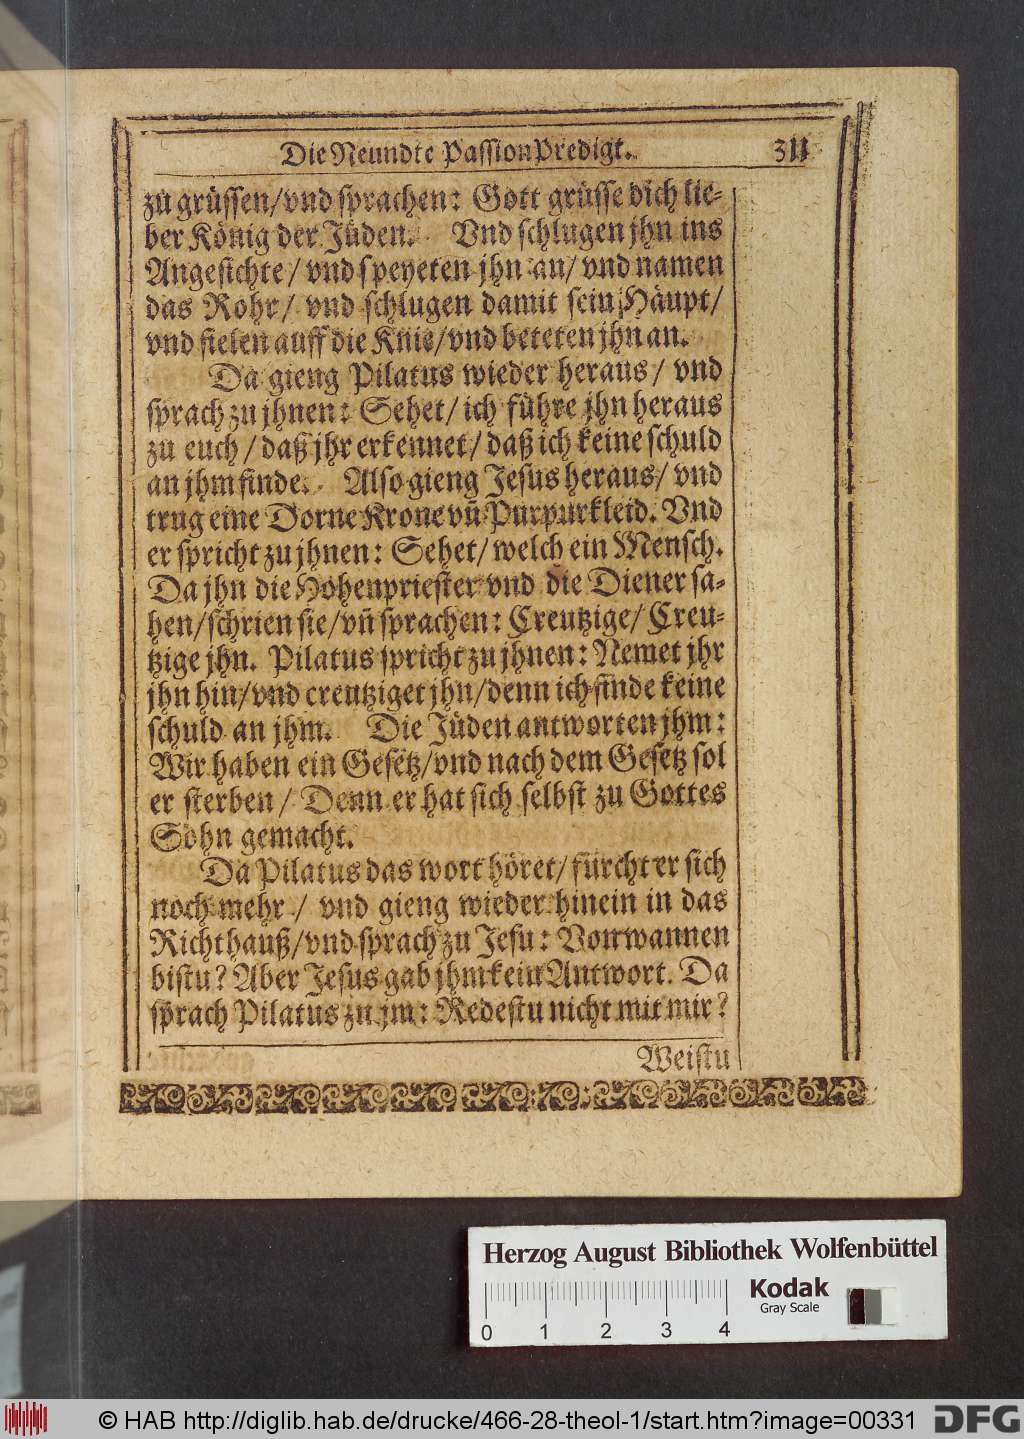 Die Neundte PassionPredigt. 311
zu grüssen/vnd sprachen: Gott grüsse dich lie-
ber König der Jüden. Vnd schlugen jhn ins
Angesichte/ vnd speyeten jhn an/ vnd namen
das Rohr/ vnd schlugen damit sein Häupt/
vnd fielen auff die Knie/vnd beteten jhn an.
Da gieng Pilatus wieder heraus/ vnd
sprach zu jhnen: Sehet/ ich führe jhn heraus
zu euch/daß jhr erkennet/daß ich keine schuld
an jhm finde. Also gieng Jesus heraus/ vnd
trug eine Dorne Krone vñ Purpurkleid. Vnd
er spricht zu jhnen: Sehet/ welch ein Mensch.
Da jhn die Hohenpriester vnd die Diener sa-
hen/schrien sie/vñ sprachen: Creutzige/ Creu-
tzige jhn. Pilatus spricht zu jhnen: Nemet jhr
jhn hin/vnd creutziget jhn/denn ich finde keine
schuld an jhm. Die Jüden antworten jhm:
Wir haben ein Gesetz/vnd nach dem Gesetz sol
er sterben/ Denn er hat sich selbst zu Gottes
Sohn gemacht.
Da Pilatus das wort höret/ fürcht er sich
noch mehr/ vnd gieng wieder hinein in das
Richthauß/vnd sprach zu Jesu: Von wannen
bistu? Aber Jesus gab jhm kein Antwort. Da
sprach Pilatus zu jm: Redestu nicht mit mir?
Weistu
Herzog August Bibliothek Wolfenbüttel
Kodak
Gray Scale
0 1 2 3 4
© HAB http://diglib.hab.de/drucke/466-28-theol-1/start.htm?image=00331
DFG